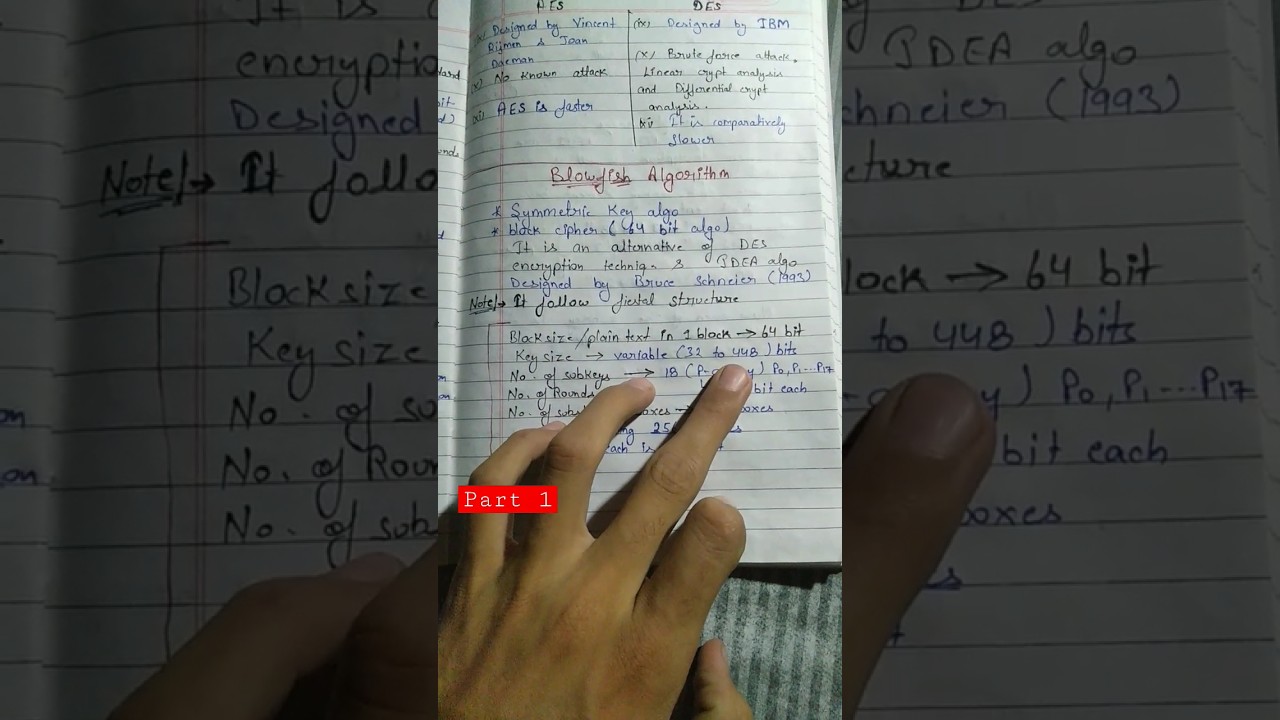 AES
DES
Designed by Vincent
Rijmen & Joan
Daeman
x) No known attack
xi) AES is faster
(ix) Designed by IBM
(x) Brute force attack,
Linear crypt analysis
and Differential crypt
analysis.
xi) It is comparatively
slower
Blowfish Algorithm
* Symmetric Key algo
* block cipher (64 bit algo)
It is an alternative of DES
encryption techniq. & IDEA algo
Designed by Bruce Schneier (1993)
Note/→ It follow fiestal structure
Block size/plain text in 1 block → 64 bit
Key size → variable (32 to 448) bits
No. of subkeys → 18 (P- y) P0, P1 ... P17
No. of Rounds bit each
No. of sub boxes → boxes
25
each is
Part 1